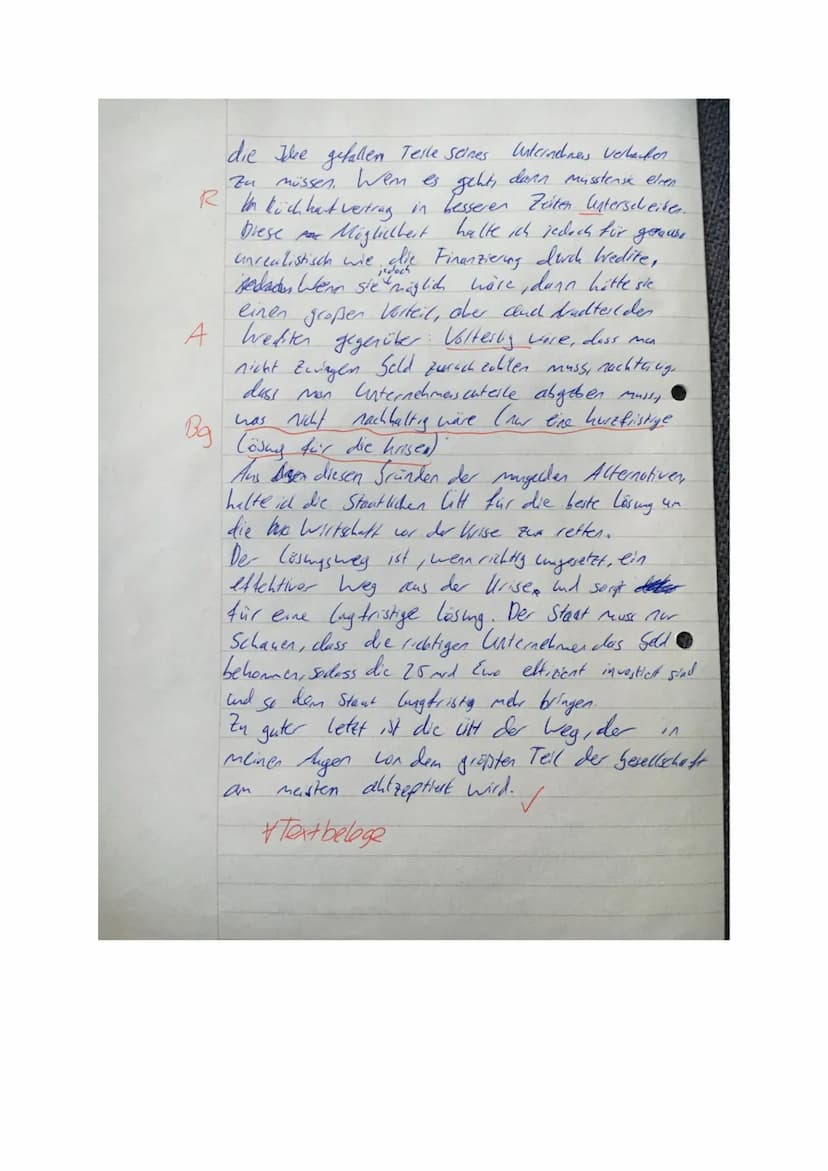 die Idee gefallen Teile seines Unternehmens verkaufen
zu müssen. Wenn es geht, dann müsste einen
R
Rückkaufvertrag in besseren Zeiten Unterscheiben.
Diese Möglichkeit halte ich jedoch für genauso
unrealistisch wie die Finanzierung durch Kredite,
jedoch
Wenn sie möglich wäre, dann hätte sie
einen großen Vorteil, aber auch den
A
Krediten gegenüber: Vorteilig wäre, dass man
nicht zwingen Geld zurück zahlen muss, nachteilig,
dass man Unternehmensanteile abgeben muss,
Bg
was nicht nachhaltig wäre (nur eine kurzfristige
Lösung für die Krise)
Aus diesen Gründen der mangelden Alternativen,
halte ich die Staatlichen für die beste Lösung um
die Wirtschaft vor der Krise zum retten.
Der Lösungsweg ist, wenn richtig umgesetzt, ein
effektiver Weg aus der Krise, und sorgt
für eine langfristige Lösung. Der Staat muss nur
Schauen, dass die richtigen Unternehmen das Geld
bekommen, sodass die 25 mrd Euro effizient investiert sind
und so dem Staat langfristig mehr bringen.
Zu guter letzt ist die der Weg, der in
meinen Augen von dem größten Teil der Gesellschaft
am meisten aktzeptiert wird. ✓
Textbelege